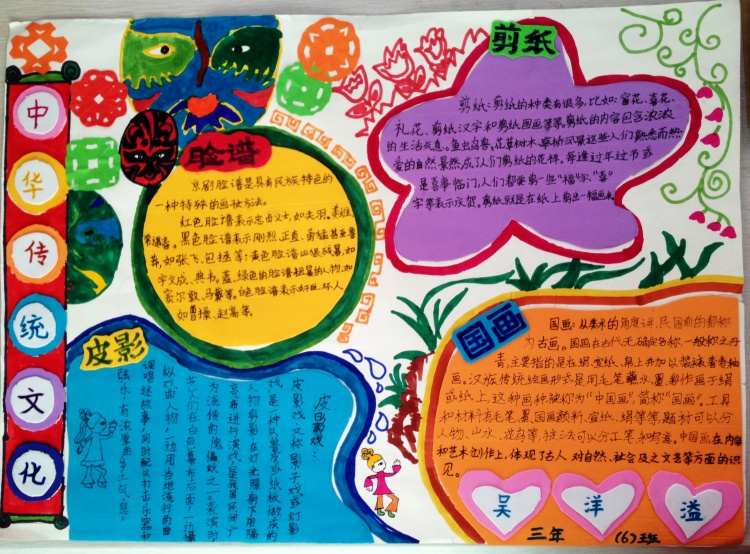 中
华
传
统
文
化
脸谱
京剧脸谱是具有民族特色的
一种特殊的化妆方法。
红色脸谱表示忠勇义士,如关羽、姜维、
常遇春。黑色脸谱表示刚烈、正直、勇猛甚至鲁
莽,如张飞、包拯等;黄色脸谱凶狠残暴,如
宇文成、典韦。蓝、绿色的脸谱粗莽的人物,如
窦尔敦、马武等。白色脸谱表示奸臣、坏人
如曹操、赵高等。
剪纸
剪纸:剪纸的种类有很多,比如:窗花、喜花、
礼花、剪纸汉字和剪纸国画等等。剪纸的内容包含浓浓
的生活气息。鱼虫鸟兽、花草树木、亭桥风景这些人们熟悉而热
爱的自然景然成了人们剪纸的花样。每逢过年过节或
是喜事临门,人们都要剪一些“福”字、“喜”
字等表示庆贺。剪纸就是在纸上剪出一幅画来。
皮影
皮影戏:
皮影戏,又称“影子戏”或“灯影
戏”,是一种以兽皮或纸板做成的
人物剪影在灯光照射下用隔
亮布进行演戏,是我国民间广
为流传的傀儡戏之一。表演时
艺人们在白色幕布后面,一边操
纵戏曲人物,一边用当地流行的曲
调唱述故事,同时配以打击乐器和
弦乐,有浓厚的乡土气息。
国画
国画:从美术的角度讲,民国前的都称
为古画。国画在古代无确定名称,一般称之丹
青,主要指的是在绢、宣纸、帛上并加以装裱着卷轴
画。汉族传统绘画形式是用毛笔蘸水、墨、彩作画于绢
或纸上,这种画种被称为“中国画”,简称“国画”。工具
和材料有毛笔、墨、国画颜料、宣纸、绢等等,题材可以分
人物、山水、花鸟等,技法可以分工笔和写意,中国画在内容
和艺术创作上,体现了古人对自然、社会及之文艺等方面的认
识。
吴
洋
溢
三年 (6)班